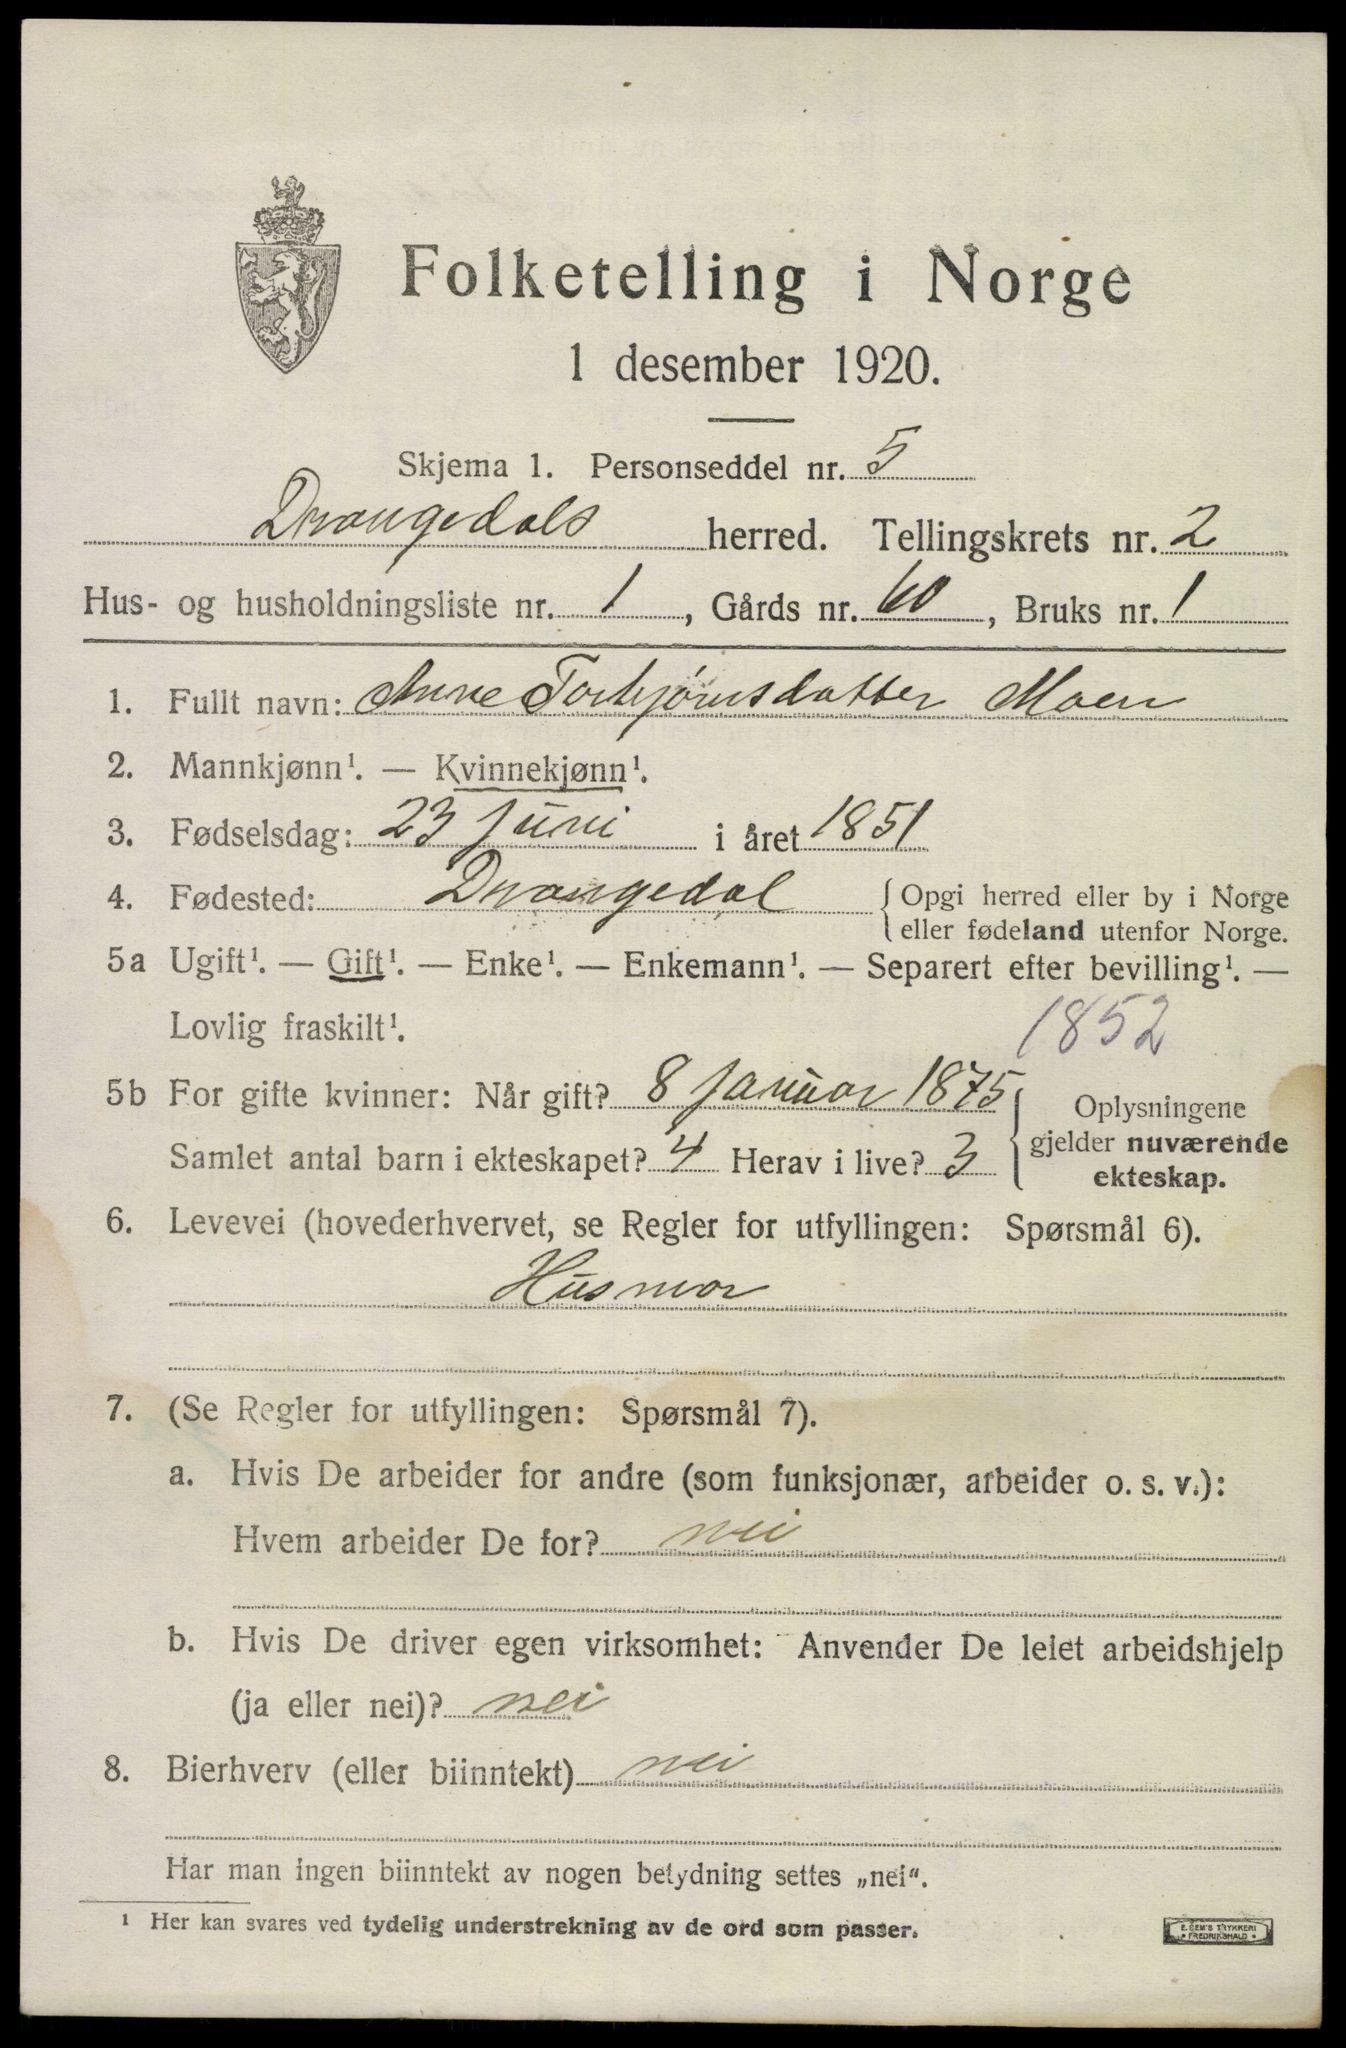 Folketelling i Norge
1 desember 1920.
Skjema 1. Personseddel nr. 5
Drangedals herred. Tellingskrets nr. 2
Hus- og husholdningsliste nr. 1, Gårds nr. 60, Bruks nr. 1
1. Fullt navn: Anne Torbjørnsdatter Moen
2. Mannkjønn¹. — Kvinnekjønn¹.
3. Fødselsdag: 23 Juni i året 1851
4. Fødested: Drangedal { Opgi herred eller by i Norge
eller fødeland utenfor Norge.
5a Ugift¹. — Gift¹. — Enke¹. — Enkemann¹. — Separert efter bevilling¹. —
Lovlig fraskilt¹. 1852
5b For gifte kvinner: Når gift? 8 Januar 1875
Samlet antal barn i ekteskapet? 4 Herav i live? 3
{ Oplysningene
gjelder nuværende
ekteskap.
6. Levevei (hovederhvervet, se Regler for utfyllingen: Spørsmål 6).
Husmor
7. (Se Regler for utfyllingen: Spørsmål 7).
a. Hvis De arbeider for andre (som funksjonær, arbeider o. s. v.):
Hvem arbeider De for? nei
b. Hvis De driver egen virksomhet: Anvender De leiet arbeidshjelp
(ja eller nei)? nei
8. Bierhverv (eller biinntekt) nei
Har man ingen biinntekt av nogen betydning settes „nei“.
¹ Her kan svares ved tydelig understrekning av de ord som passer.
E. SEM'S TRYKKERI
FREDRIKSHALD